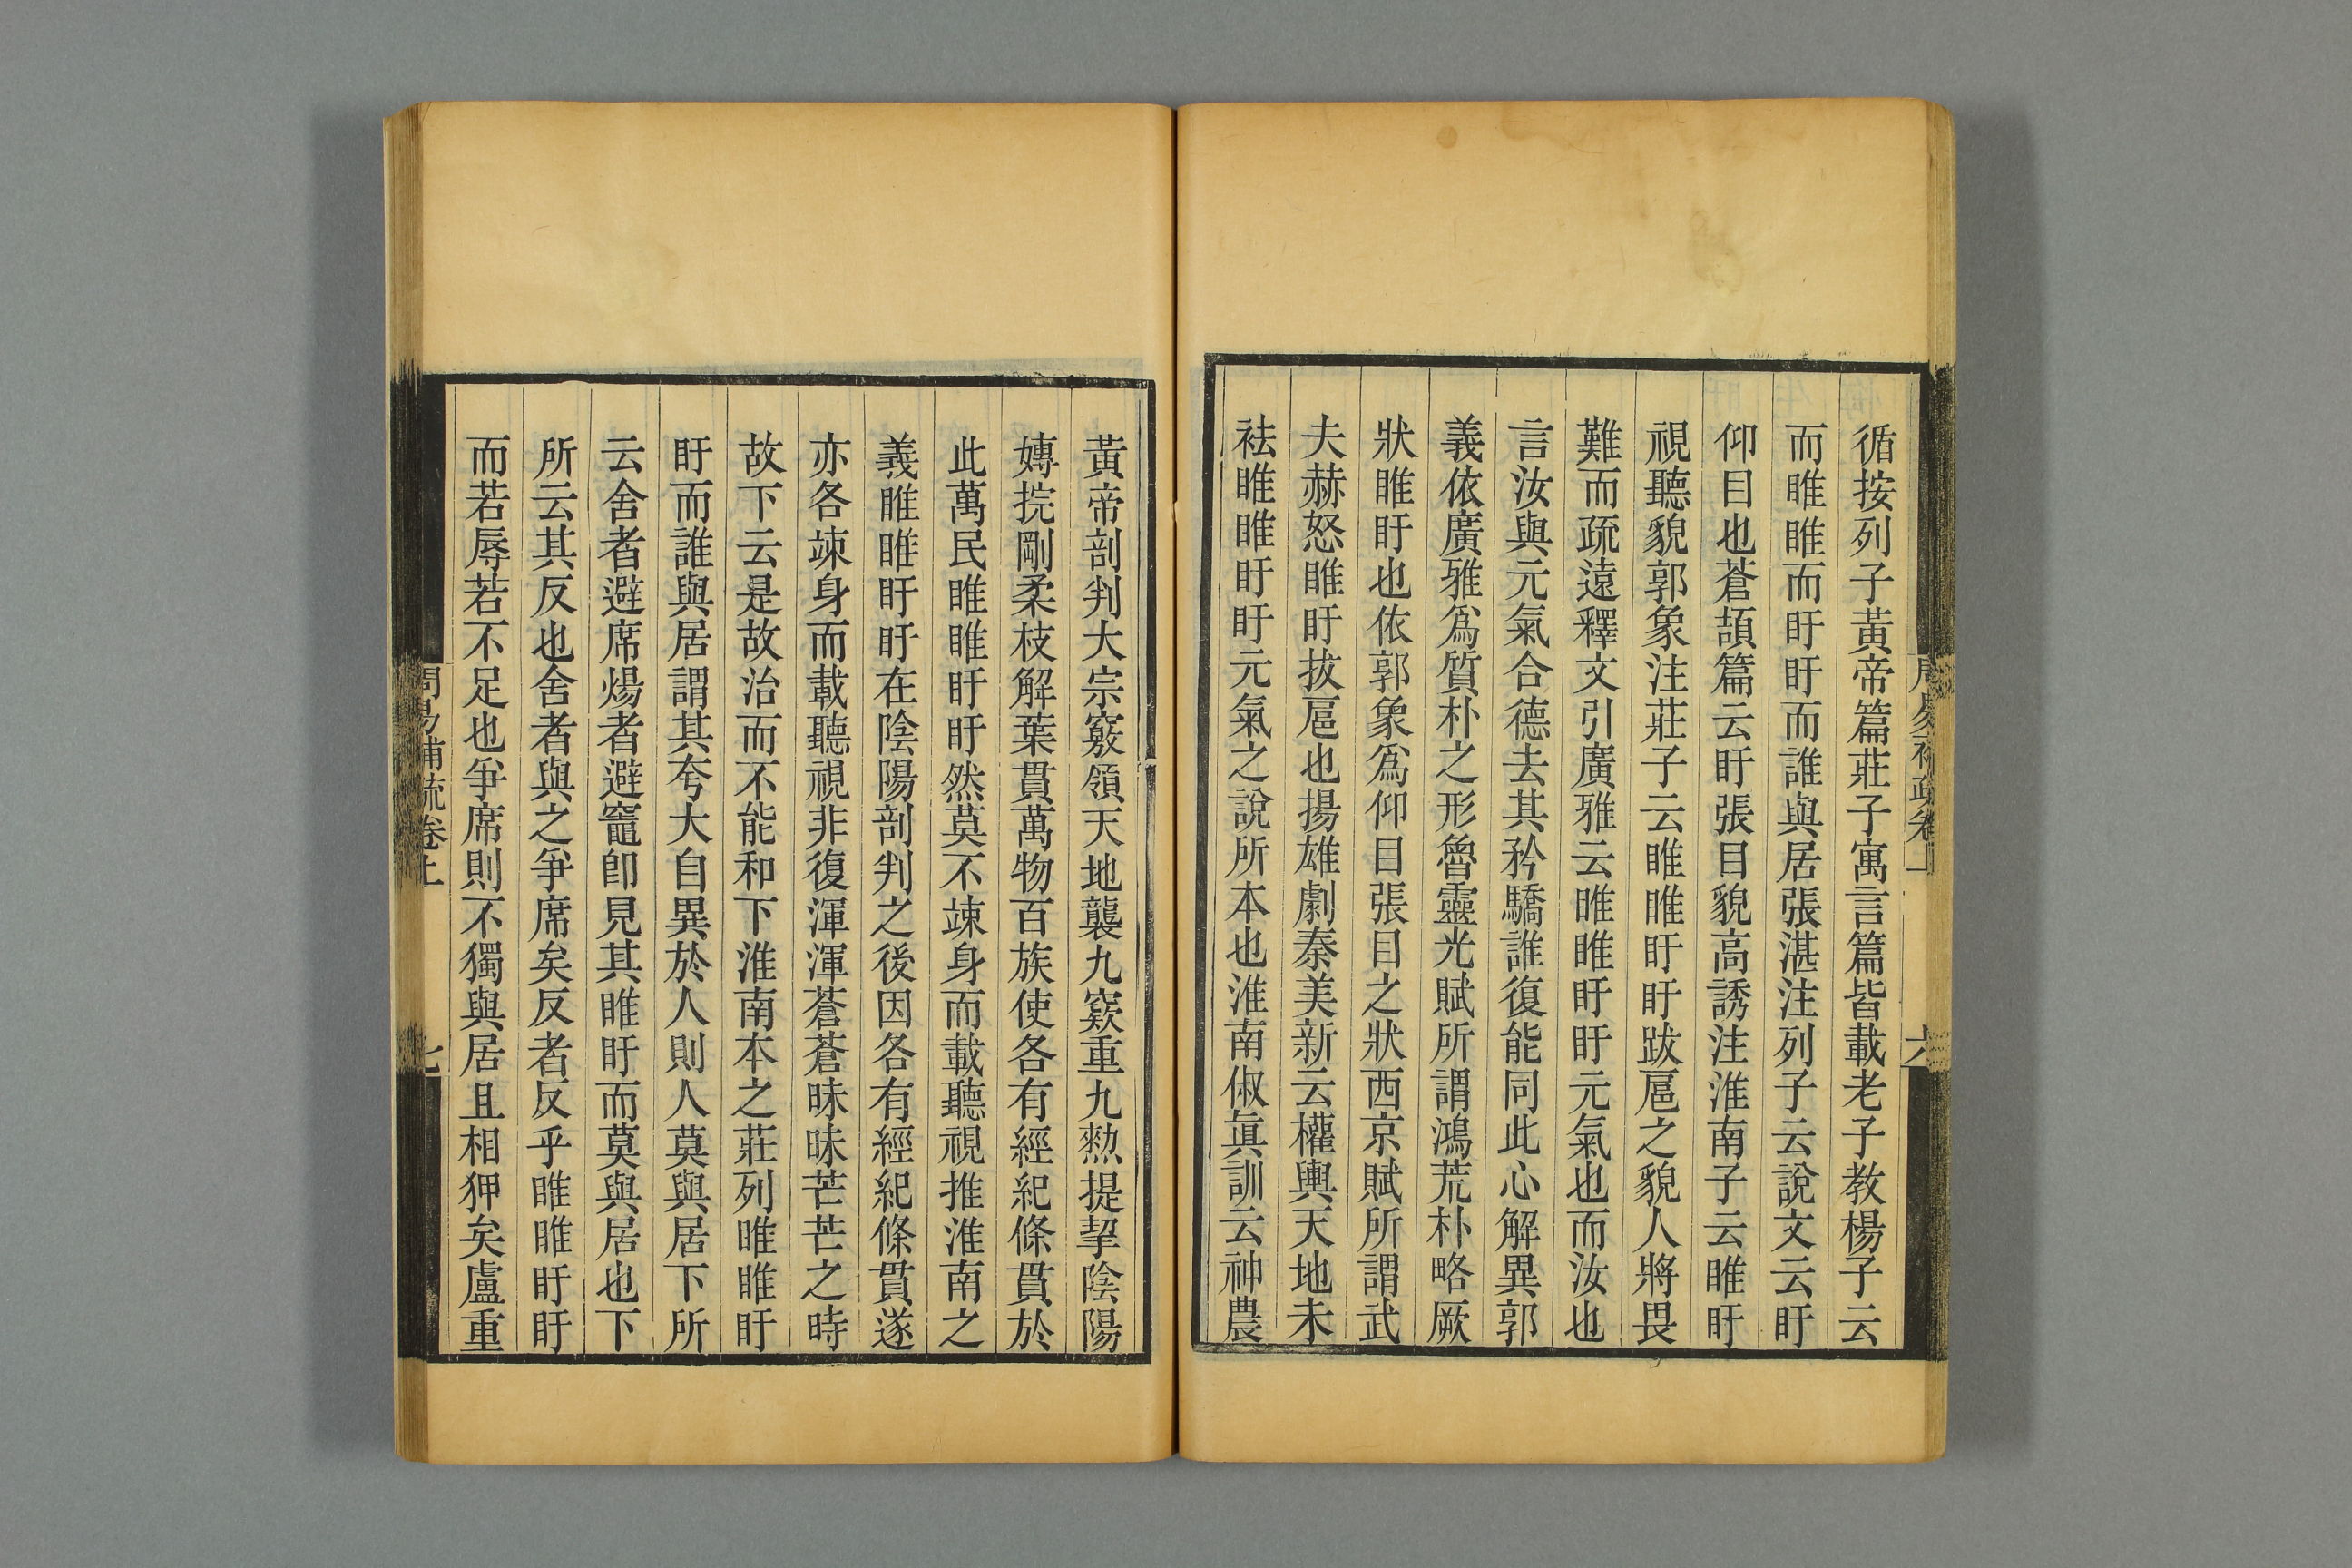 循按列子黃帝篇莊子寓言篇皆載老子教楊子云
而睢睢而盱盱而誰與居張湛注列子云說文云盱
仰目也蒼頡篇云盱張目貌高誘注淮南子云睢盱
視聽貌郭象注莊子云睢睢盱盱跋扈之貌人將畏
難而疏遠釋文引廣雅云睢睢盱盱元氣也而汝也
言汝與元氣合德去其矜驕誰復能同此心解異郭
義依廣雅爲質朴之形魯靈光賦所謂鴻荒朴略厥
狀睢盱也依郭象爲仰目張目之狀西京賦所謂武
夫赫怒睢盱拔扈也揚雄劇秦美新云權輿天地未
袪睢睢盱盱元氣之說所本也淮南俶眞訓云神農
周易補疏卷上
六
黃帝剖判大宗竅領天地襲九窾重九㷉提挈陰陽
嫥捖剛柔枝解葉貫萬物百族使各有經紀條貫於
此萬民睢睢盱盱然莫不竦身而載聽視推淮南之
義睢睢盱盱在陰陽剖判之後因各有經紀條貫遂
亦各竦身而載聽視非復渾渾蒼蒼昧昧芒芒之時
故下云是故治而不能和下淮南本之莊列睢睢盱
盱而誰與居謂其夸大自異於人則人莫與居下所
云舍者避席煬者避竈卽見其睢盱而莫與居也下
所云其反也舍者與之爭席矣反者反乎睢睢盱盱
而若辱若不足也爭席則不獨與居且相狎矣盧重
周易補疏卷上
七